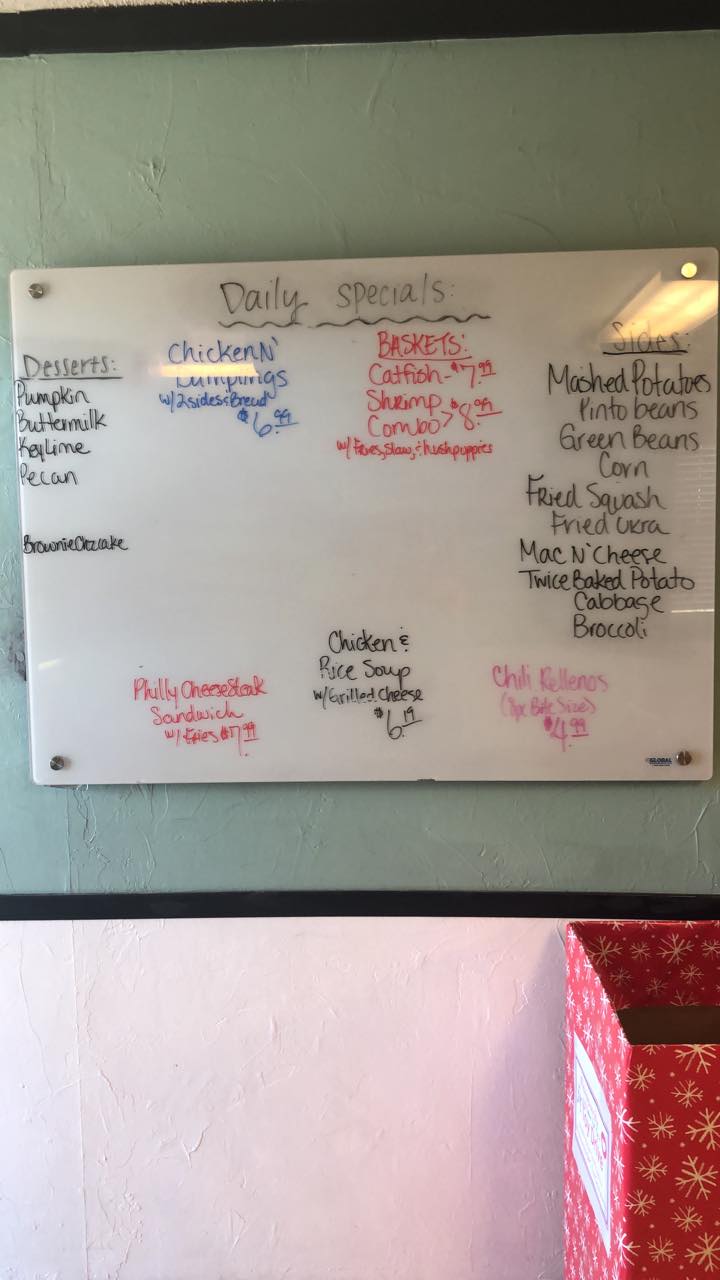 Daily Specials:
Desserts:
Pumpkin
Buttermilk
Key Lime
Pecan
Brownie Chzcake
Chicken N'
Dumplings
w/ 2 sides & Bread
$6.99
BASKETS:
Catfish - $7.99
Shrimp
Combo > $8.99
w/ Fries, Slaw, & hushpuppies
Sides:
Mashed Potatoes
Pinto beans
Green Beans
Corn
Fried Squash
Fried Okra
Mac N' Cheese
Twice Baked Potato
Cabbage
Broccoli
Philly CheeseSteak
Sandwich
w/ Fries $7.99
Chicken &
Rice Soup
w/ Grilled Cheese
$6.19
Chili Rellenos
(8pc Bite Size)
$4.99
GLOBAL